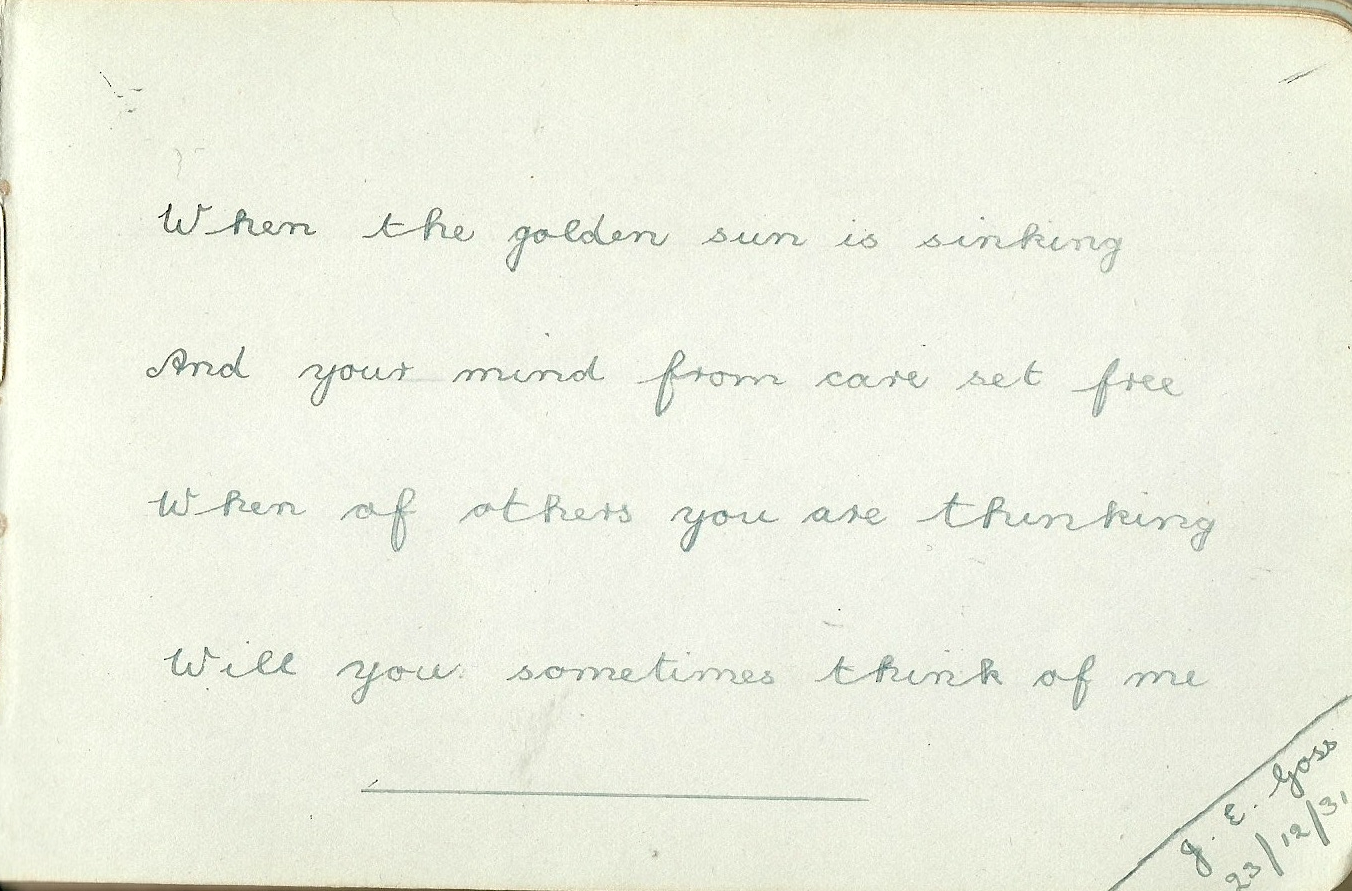 When the golden sun is sinking
And your mind from care set free
When of others you are thinking
Will you sometimes think of me
J. E. Goss
23/12/31